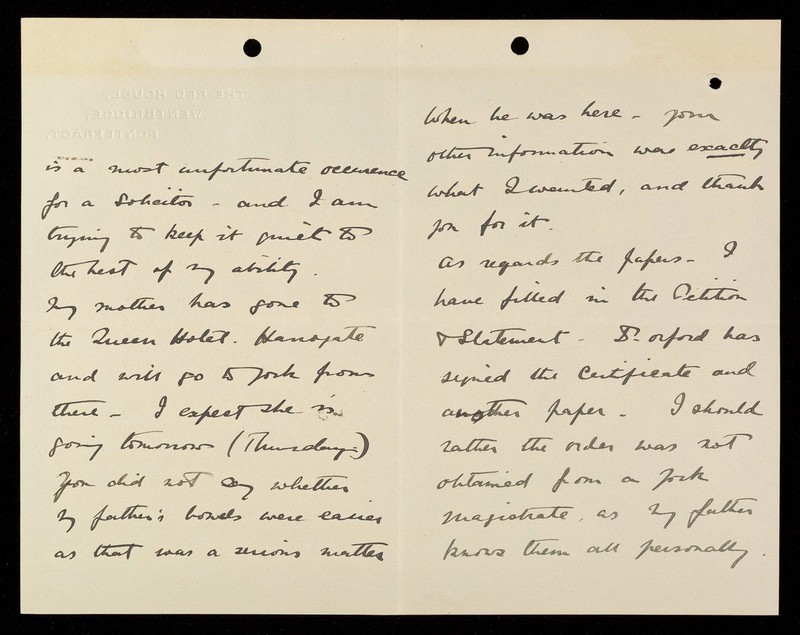 is a most unfortunate occurence
for a Solicitor - and I am
trying to keep it quiet to
the best of my ability.
My mother has gone to
the Queen Hotel. Harrogate
and will go to York from
there - I expect she is
going tomorrow (Thursday)
You did not say whether
my father's bowels were easier
as that was a serious matter
when he was here - your
other information was exactly
what I wanted, and thank
you for it.
As regards the papers - I
have filled in the Petition
& Statement - Dr. Orford has
signed the Certificate and
another paper - I should
rather the order was not
obtained from a York
magistrate, as my father
knows them all personally.
THE RED HOUSE,
WENTBRIDGE,
PONTEFRACT.